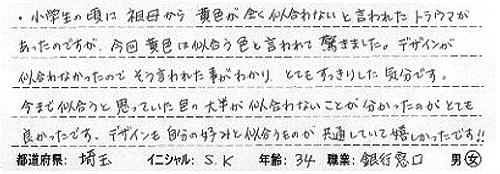 ・小学生の頃に祖母から黄色が全く似合わないと言われたトラウマが
あったのですが、今回黄色は似合う色と言われて驚きました。デザインが
似合わなかったのでそう言われた事がわかり、とてもすっきりした気分です。
今まで似合うと思っていた色の大半が似合わないことが分かったのがとても
良かったです。デザインも自分の好みと似合うものが共通していて嬉しかったです!!
都道府県: 埼玉 イニシャル: S.K 年齢: 34 職業: 銀行窓口 男 女